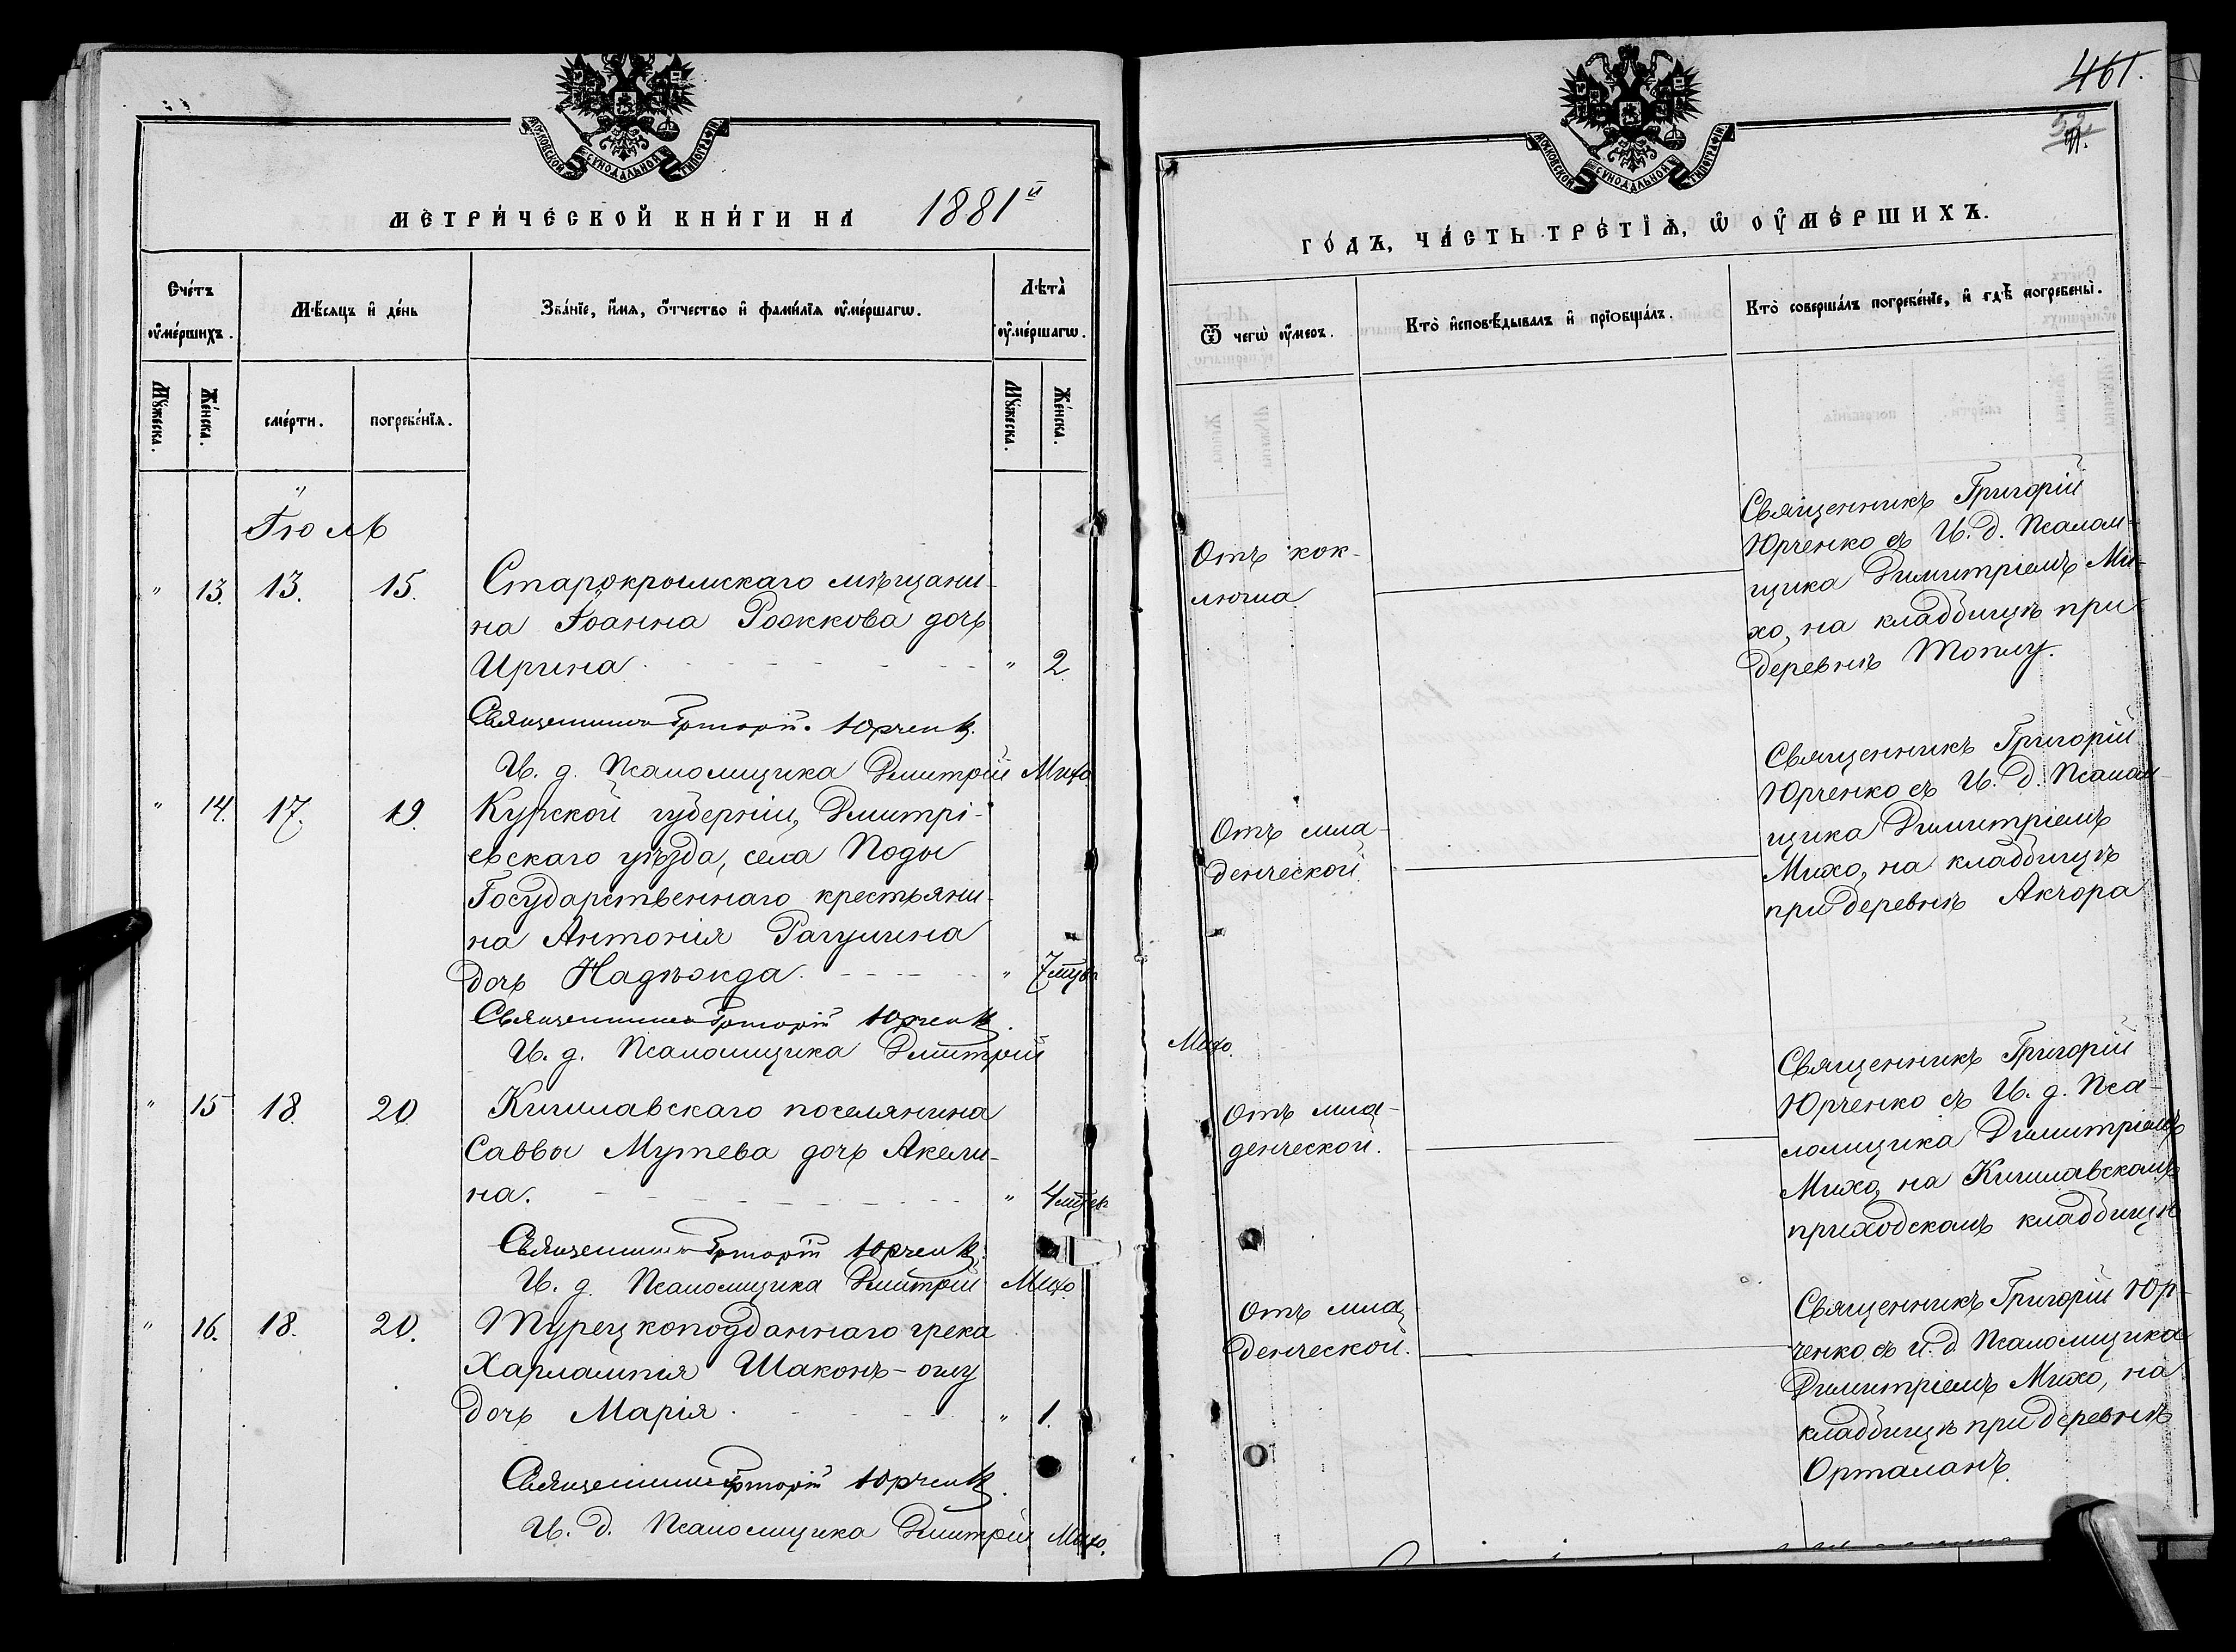 МОСКОВСКОЙ СУНОДАЛЬНОЙ ТИПОГРАФІИ
МЕТРИ́ЧЕСКОЙ КНИ́ГИ НА 1881й
Сче́тъ оу҆ме́ршихъ.
Мѣ́сяцъ и҆ де́нь
Зва́нїе, и҆́мя, ѻ҆́тчество и҆ фами́лїя оу҆ме́ршагѡ.
Лѣ́та оу҆ме́ршагѡ.
Мꙋ́жеска.
Же́нска.
сме́рти.
погребе́нїя.
Мꙋ́жеска.
Же́нска.
Іюль
" 13. 13. 15. Старокрымскаго мѣщани-
на Іоанна Рожкова дочь
Ирина. " 2
Священникъ Григорій Юрченко.
И. д. Псаломщика Дмитрій Михо.
" 14. 17. 19. Курской губерніи, Дмитрі-
евскаго уѣзда, села Поды
Государственнаго крестьяни-
на Антонія Рагулина
дочь Надѣжда. " 7 мцвъ
Священникъ Григорій Юрченко.
И. д. Псаломщика Дмитрій Михо.
" 15 18. 20. Кишлавскаго поселянина
Саввы Мутева дочь Акели-
на. " 4 мцев
Священникъ Григорій Юрченко.
И. д. Псаломщика Дмитрій Михо.
" 16. 18. 20. Турецкоподданнаго грека
Харлампія Шаконъ-оглу
дочь Марія. " 1.
Священникъ Григорій Юрченко.
И. д. Псаломщика Дмитрій Михо.
461.
МОСКОВСКОЙ СУНОДАЛЬНОЙ ТИПОГРАФІИ
ГО́ДЪ, ЧА́СТЬ ТРЕ́ТІЯ, Ѡ҆ ОУ҆МЕ́РШИХЪ.
Ѿ чегѡ̀ оу҆́меръ.
Кто̀ и҆сповѣ́дывалъ и҆ прїобща́лъ.
Кто̀ соверша́лъ погребе́нїе, и҆ гдѣ̀ погребены̀.
Отъ кок-
люша.
Священникъ Григорій
Юрченко съ И. д. Псалом-
щика Димитріемъ Ми-
хо, на кладбищѣ при
деревнѣ Топлу.
Отъ мла-
денческой.
Священникъ Григорій
Юрченко съ И. д. Псалом-
щика Димитріемъ
Михо, на кладбищѣ
при деревнѣ Акчора
Отъ мла-
денческой.
Священникъ Григорій
Юрченко съ И. д. Пса-
ломщика Димитріемъ
Михо, на Кишлавскомъ
приходскомъ кладбищѣ
Отъ мла-
денческой.
Священникъ Григорій Юр-
ченко съ И. д. Псаломщика
Димитріемъ Михо, на
кладбищѣ при деревнѣ
Орталанъ.